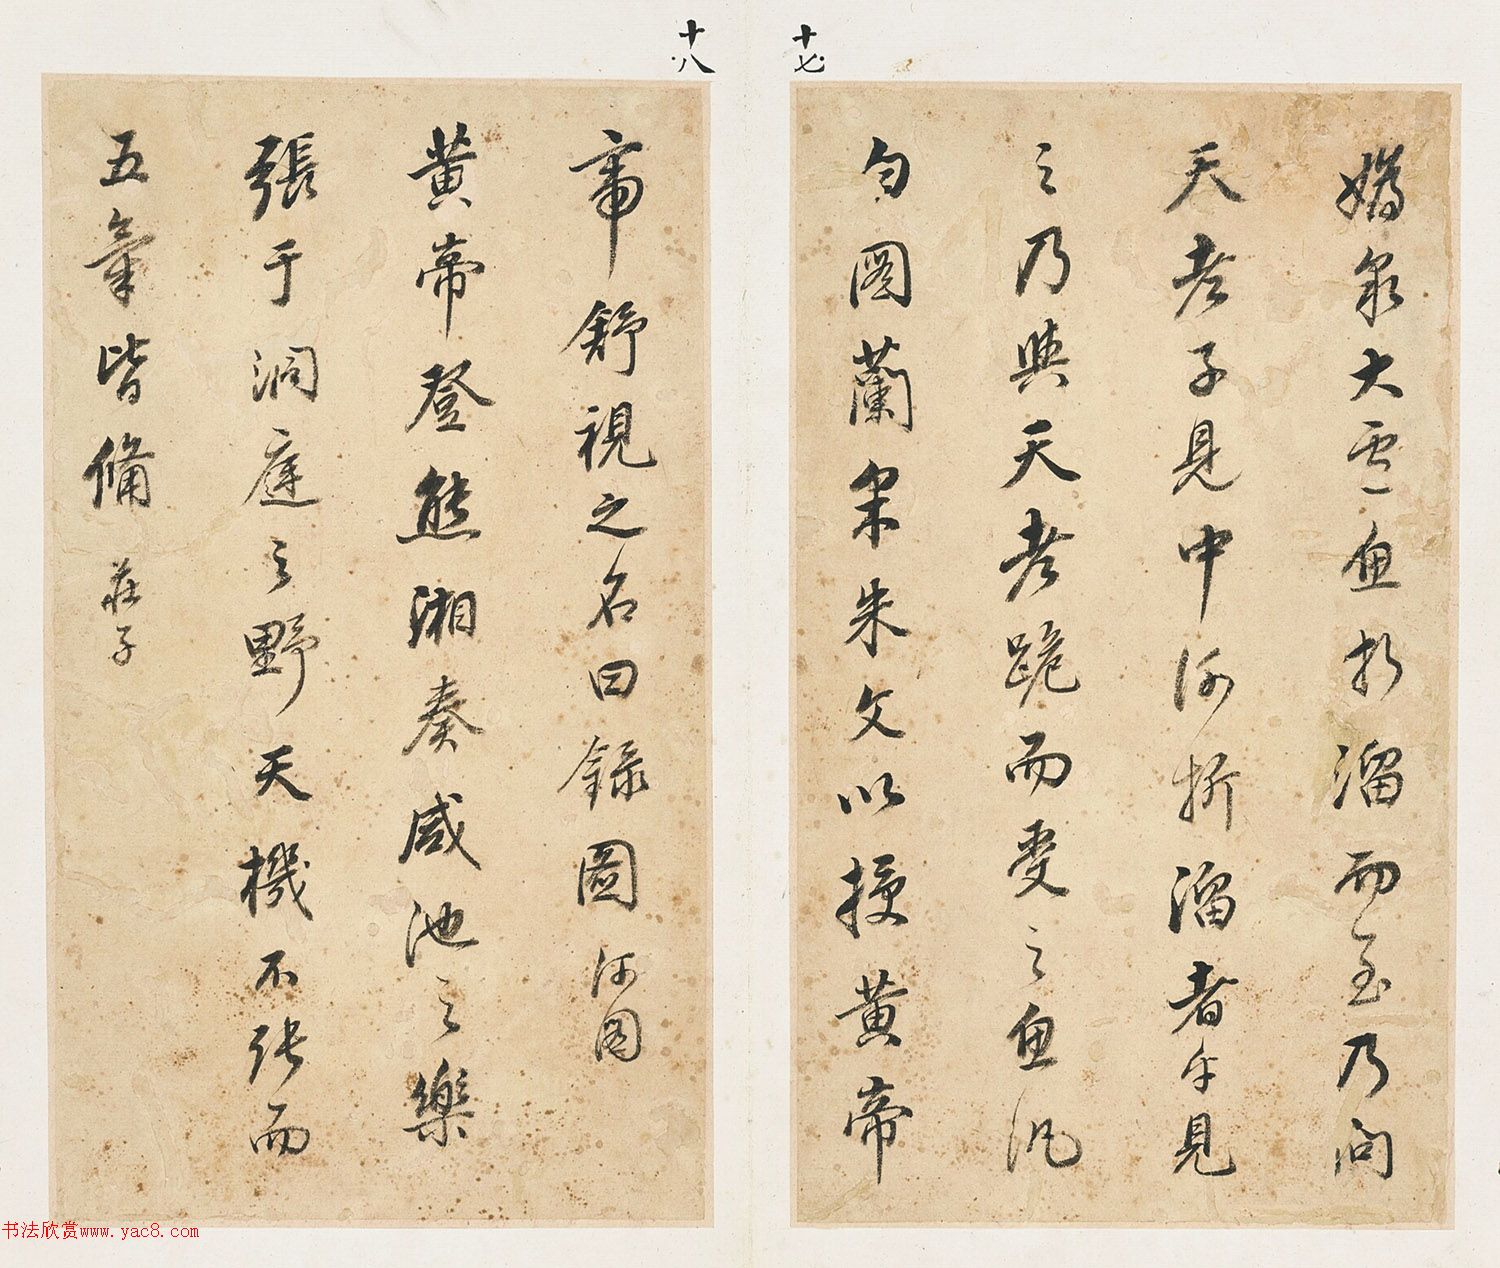 十七
嬀泉大盧魚折溜而至乃問
天老子見中河折溜者乎見
之乃與天老跪而受之魚汎
白圖蘭采朱文以授黃帝
十八
帝舒視之名曰錄圖 河圖
黃帝登熊湘奏咸池之樂
張于洞庭之野天機不張而
五氣皆備 莊子
书法欣赏www.yac8.com